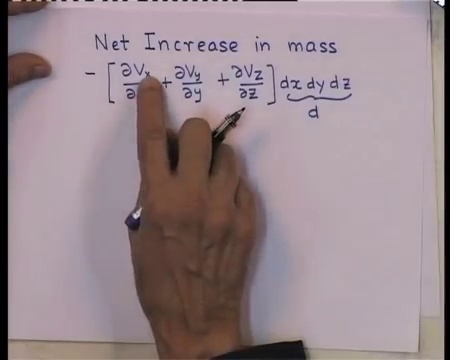 Net Increase in mass
- [ ∂Vx/∂ + ∂Vy/∂y + ∂Vz/∂z ] dx dy dz
d